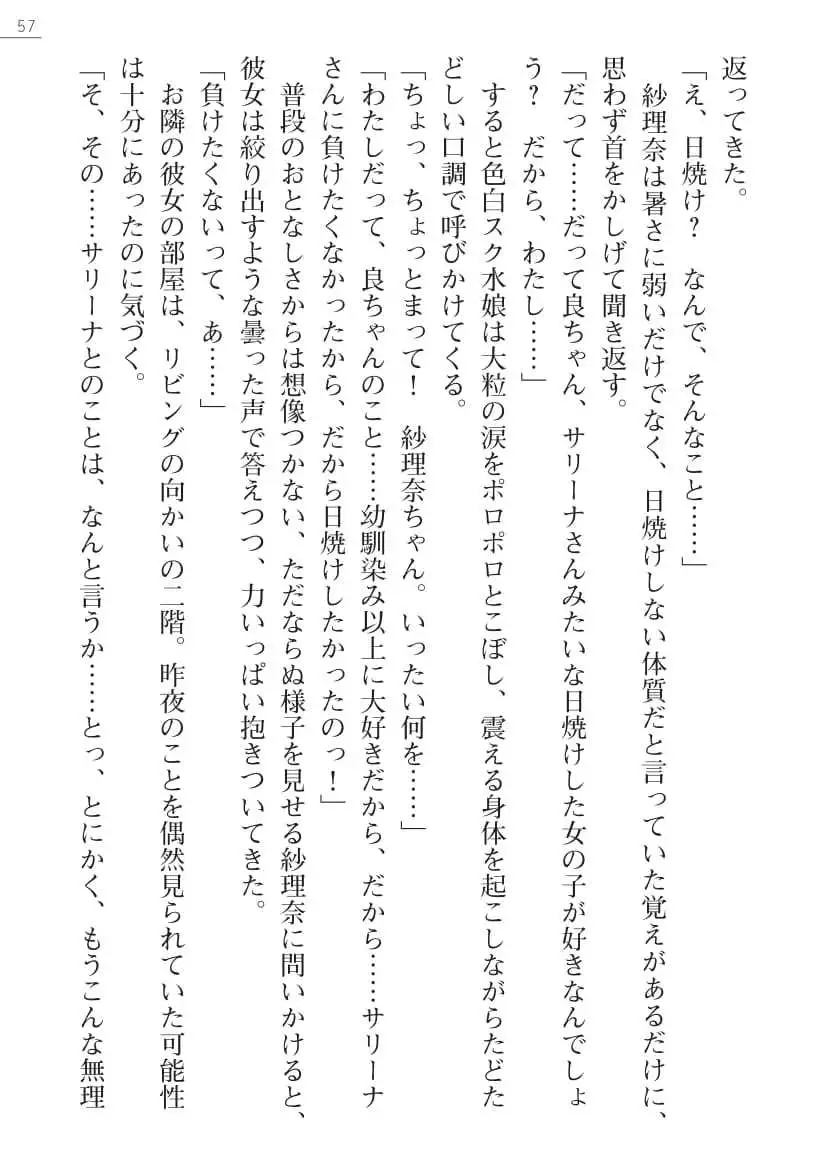 57
返ってきた。
「え、日焼け？　なんで、そんなこと……」
　紗理奈は暑さに弱いだけでなく、日焼けしない体質だと言っていた覚えがあるだけに、
思わず首をかしげて聞き返す。
「だって……だって良ちゃん、サリーナさんみたいな日焼けした女の子が好きなんでしょ
う？　だから、わたし……」
　すると色白スク水娘は大粒の涙をポロポロとこぼし、震える身体を起こしながらたどた
どしい口調で呼びかけてくる。
「ちょっ、ちょっとまって！　紗理奈ちゃん。いったい何を……」
「わたしだって、良ちゃんのこと……幼馴染み以上に大好きだから、だから……サリーナ
さんに負けたくなかったから、だから日焼けしたかったのっ！」
　普段のおとなしさからは想像つかない、ただならぬ様子を見せる紗理奈に問いかけると、
彼女は絞り出すような曇った声で答えつつ、力いっぱい抱きついてきた。
「負けたくないって、あ……」
　お隣の彼女の部屋は、リビングの向かいの二階。昨夜のことを偶然見られていた可能性
は十分にあったのに気づく。
「そ、その……サリーナとのことは、なんと言うか……とっ、とにかく、もうこんな無理